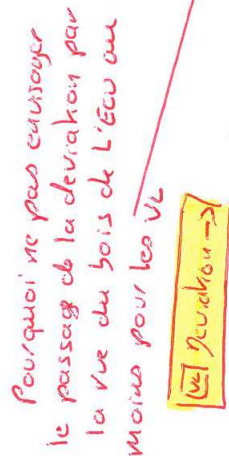 Pourquoi ne pas envisager
le passage de la deviation par
la rue du bois de L'Ecu au
moins pour les VL
VL Deviation →